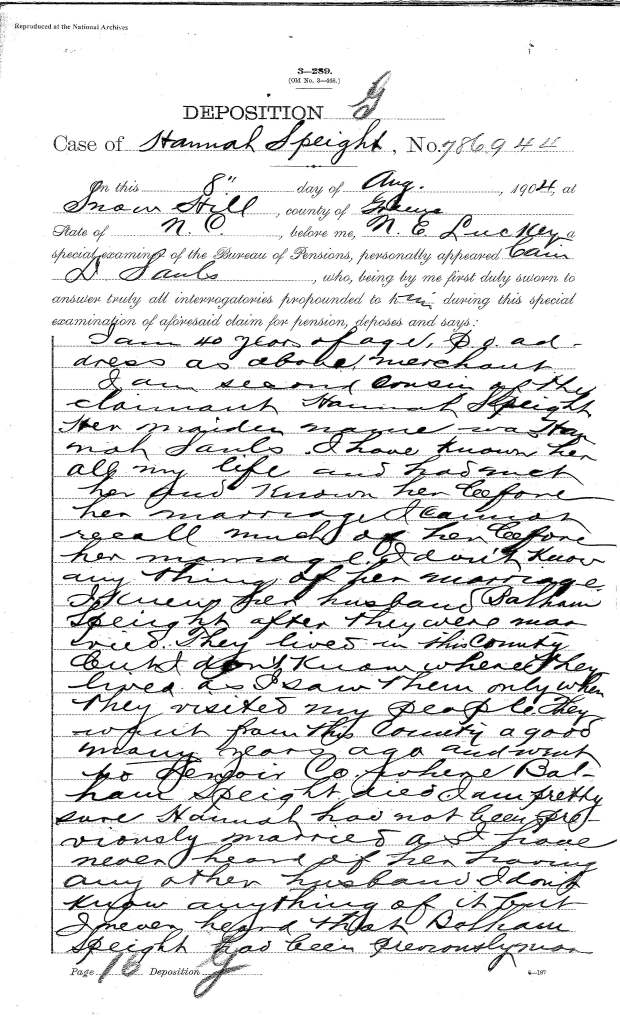 Reproduced at the National Archives
3—289.
(Old No. 3—468.)
DEPOSITION G
Case of Hannah Speight, No. 786944
On this 8" day of Aug., 1904, at
Snow Hill, county of Greene
State of N.C., before me, N. E. Luckey a
special examiner of the Bureau of Pensions, personally appeared Cain
D Sauls, who, being by me first duly sworn to
answer truly all interrogatories propounded to him during this special
examination of aforesaid claim for pension, deposes and says:
I am 40 years of age, P.O. ad-
dress as above, merchant
I am second cousin of the
claimant Hannah Speight
Her maiden name was Han
nah Sauls. I have known her
all my life and had met
her and known her before
her marriage. I cannot
recall much of her before
her marriage. I don't know
any thing of her marriage.
I knew her husband Balham
Speight after they were mar
ried. They lived in this County
but I don't know where they
lived as I saw them only when
they visited my people. They
went from this County a good
many years ago and went
to Lenoir Co. where Bal-
ham Speight died. I am pretty
sure Hannah had not been pre-
viously married as I have
never heard of her having
any other husband. I don't
know anything of it but
I never heard that Balham
Speight had been previously mar
Page 16 Deposition G
6—187